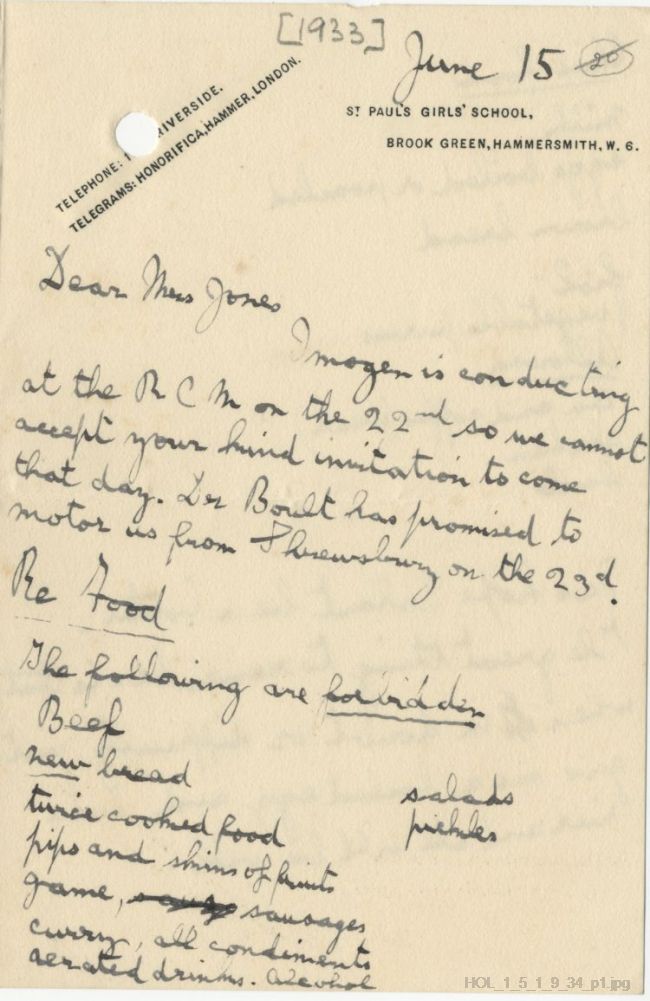 [1933]
June 15
20
TELEPHONE: RIVERSIDE.
TELEGRAMS: HONORIFICA, HAMMER, LONDON.
ST PAUL'S GIRLS' SCHOOL,
BROOK GREEN, HAMMERSMITH, W. 6.
Dear Mrs Jones
Imogen is conducting
at the R C M on the 22nd so we cannot
accept your kind invitation to come
that day. Dr Boult has promised to
motor us from Shrewsbury on the 23d.
Re Food
The following are forbidden
Beef
new bread
twice cooked food
pips and skins of fruits
game, sausages
curry, all condiments
aerated drinks. Alcohol
salads
pickles
HOL_1_5_1_9_34_p1.jpg